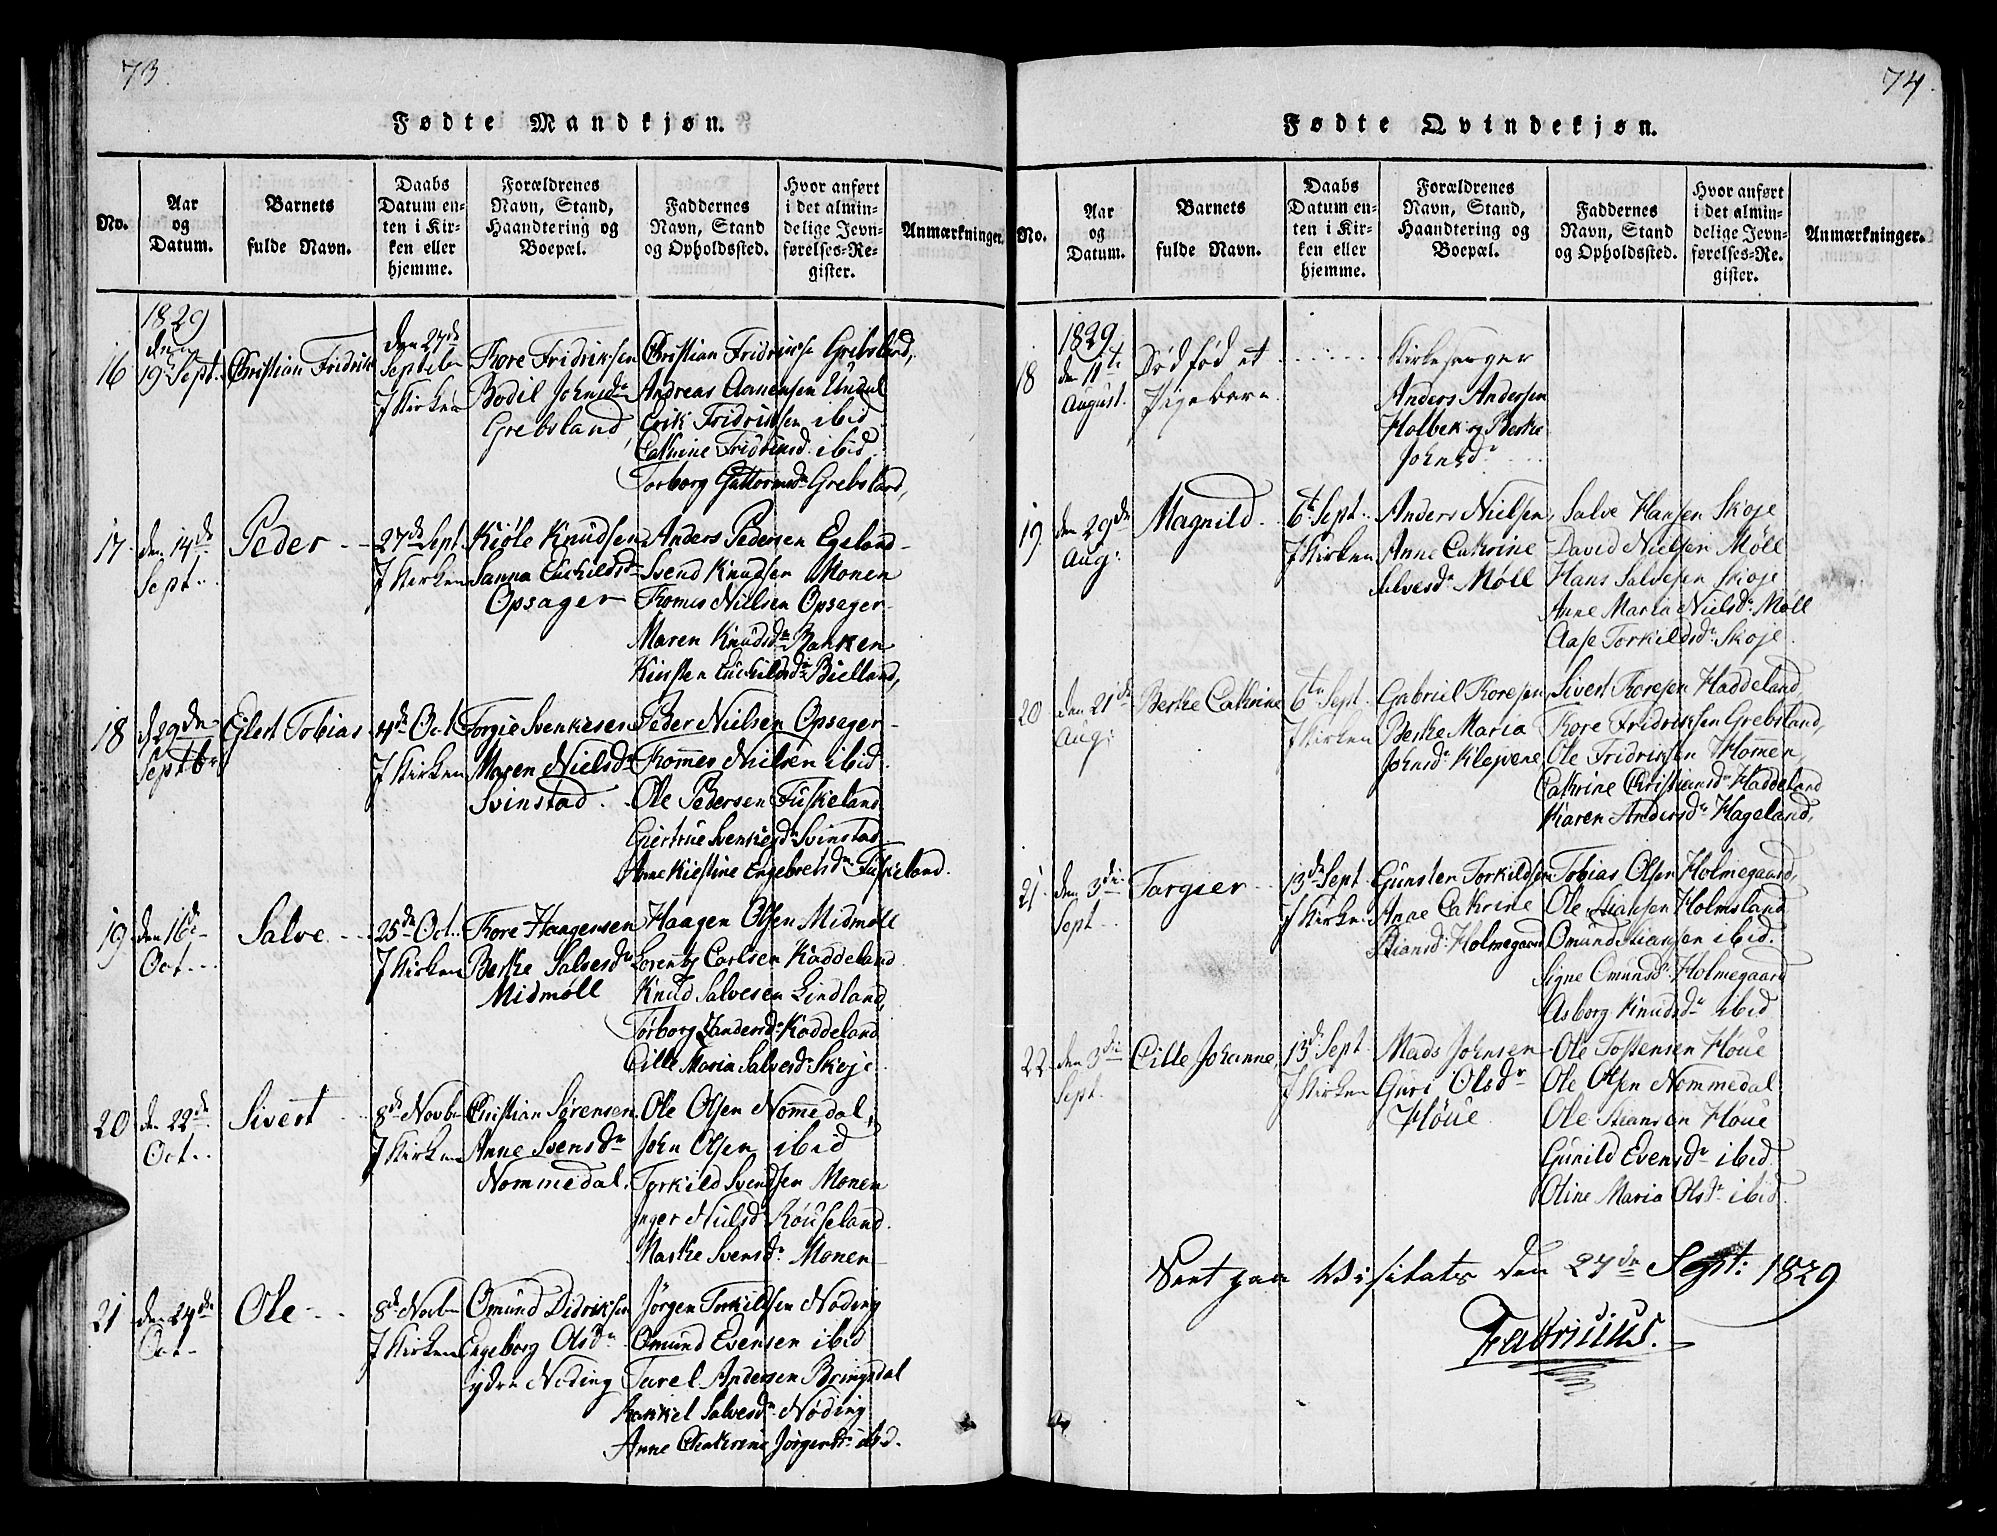 73.
Fødte Mandkjøn.
No.
Aar
og
Datum.
Barnets
fulde Navn.
Daabs
Datum en-
ten i Kir-
ken eller
hjemme.
Forældrenes
Navn, Stand,
Haandtering og
Boepæl.
Faddernes
Navn, Stand
og Opholdssted.
Hvor anført
i det almin-
delige Jevn-
førelses-Re-
gister.
Anmærkninger.
16
1829
den
19de Sept.
Christian Fridrik
den 27de
Septbr
J Kirken
Tore Fridriksen
Bodil Johnsdr
Grebsland,
Christian Fridriksen Grebsland,
Andreas Aanensen Undal
Erik Fridriksen ibid
Cathrine Fridriksd. ibid.
Torborg Guttormsdr Grebsland,
17
den 14de
Sept..
Peder
27de Sept.
J Kirken
Kiøle Knudsen
Sanna
Opsager
Anders Pedersen Egeland
Svend Knudsen Monen
Tomes Nielsen Opsager
Maren Knudsdr Bakken
Kirsten Bielland,
18
d 29de
Septbr
Eilert Tobias
4de Oct
J Kirken
Torgie Svenkesen
Maren Nielsdr
Svinstad.
Peder Nielsen Opsager
Tommes Nielsen ibid.
Ole Pedersen Fuskeland
Giertrue Svenkesdr Svinstad
Anne Kirstine Engebretsdr Fuskeland.
19
den 16de
Oct...
Salve
25de Oct..
J Kirken
Tore Haagensen
Berthe Salvesdr
Midmøll
Haagen Olsen Midmøll
Lorentz Carlsen Kaddeland
Knud Salvesen Lindland,
Torborg Kaddeland
Cille Maria Salvesdr Skøje
20
den 22de
Oct..
Sivert
8de Novbr
J Kirken
Christian Sørensen
Anne Svensdr
Nommedal.
Ole Olsen Nommedal,
John Olsen ibid
Torkild Svendsen Monen
Inger Nielsdr Røuseland.
Marthe Svensdr Monen
21
den 24de
Oct
Ole
8de Novbr
J Kirken
Omund Didriksen
Engeborg Olsdr
ydre Nøding
Jørgen Torkildsen Nøding
Omund Evensen ibid
Tarel Andersen Bringsdal
Rakkel Salvesdr Nøding
Anne Chatrine Jørgensdr ibid.
74.
Fødte Qvindekjøn.
No.
Aar
og
Datum.
Barnets
fulde Navn.
Daabs
Datum en-
ten i Kir-
ken eller
hjemme.
Forældrenes
Navn, Stand,
Haandtering og
Boepæl.
Faddernes
Navn, Stand
og Opholdssted.
Hvor anført
i det almin-
delige Jevn-
førelses-Re-
gister.
Anmærkninger.
18
1829
den 11te
August.
Død fød et
Pigebarn
Kirkesanger
Anders Andersen
Holbek og Berthe
Johnsdr
19
den 29de
Aug:
Magnild
6te Sept..
J Kirken
Anders Nielsen,
Anne Cathrine
Salvesdr Møll
Salve Hansen Skøje
David Nielsen Møll
Hans Salvesen Skøje
Anne Maria Nielsdr Møll
Aase Torkildsdr Skøje.
20
den 21de
Aug:
Berthe Cathrine
6te Sept.
J Kirken
Gabriel Toresen
Berthe Maria
Johnsdr Klejvene
Sivert Toresen Haddeland,
Tore Fridriksen Grebsland,
Ole Fridriksen Hommen,
Cathrine Christiansdr Haddeland
Karen Andersdr Hageland,
21
den 3die
Sept
Targier
13de Sept
J Kirken
Gunsten Torkildsen
Anne Cathrine
Stiansdr Holmegaard
Tobias Olsen Holmegaard,
Ole Stiansen Holmsland
Omund Stiansen ibid.
Signe Omunsdr Holmegaard
Asborg Knudsdr ibid
22
den 3die
Sept.
Cille Johanne,
13de Sept
J Kirken
Mads Johnsen
Guri Olsdr
Høue
Ole Tostensen Høue
Ole Olsen Nommedal
Ole Stiansen Høue
Gunild Evensdr ibid.
Oline Maria Olsdr ibid.
Seet paa Visitats den 27de Sept: 1829
Fabricius.